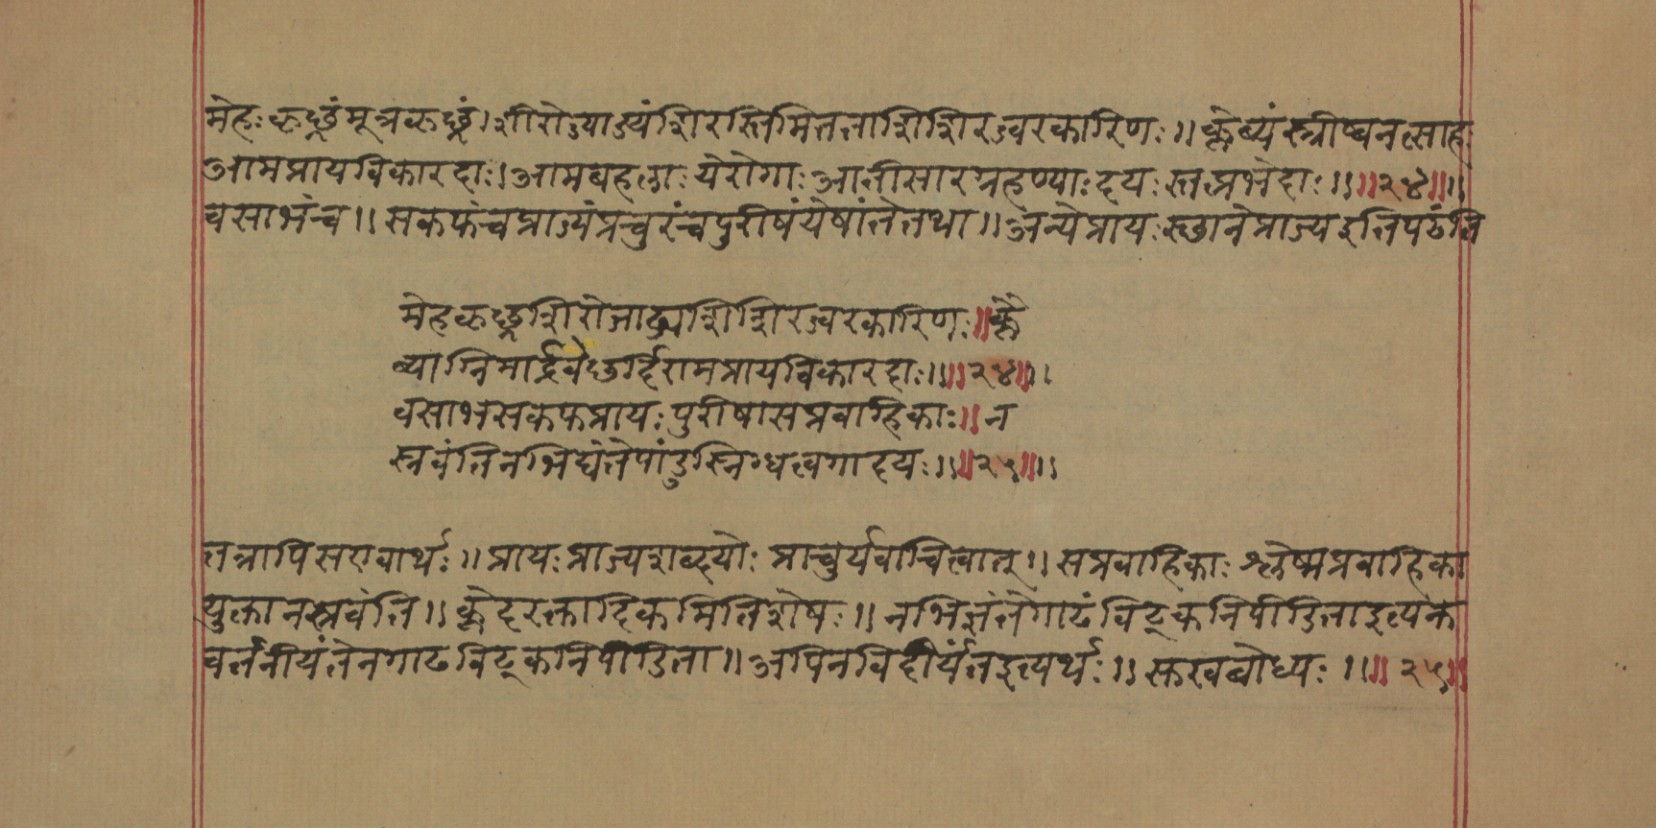 मेहः कृछ्रं मूत्रकृछ्रं । शीरोज्याज्यं शिरस्तिमितताशिशिरज्वरकारिणः ॥ क्लैव्यं स्त्रीष्वनुत्साहः
आमप्रायविकारदाः । आमबहुलाः येरोगाः आतीसारग्रहण्याः दयः स्तत्प्रभेदाः ॥ ॥ २४ ॥ ॥
वसाभंच ॥ सकफंचप्राज्यंप्रचुरंचपुरीषंयेषांतेतथा ॥ अन्येप्रायःस्छानेप्राज्यइतिपठंति
मेहकृछ्रशिरोजाड्यशिशिरज्वरकारिणः ॥ क्लै
व्याग्निमार्द्दवैछर्द्दिरामप्रायविकारदाः ॥ ॥ २४ ॥ ॥
वसाभसकफप्रायःपुरीषासप्रवाहिकाः ॥ न
स्रवंतिनभिद्यंतेपांडुस्निग्धत्वगादयः ॥ ॥ २५ ॥ ॥
तत्रापिसएवार्थः ॥ प्रायःप्राज्यशब्दयोः प्राचुर्यवाचित्वात् ॥ सप्रवाहिकाः श्लेष्मप्रवाहिका
युक्तानस्रवंति ॥ क्लेदरक्तादिकमितिशेषः ॥ नभिद्यंतेगाढंविट्कनिपीडिताइत्यके
वर्तनीयंतेनगाढविट्कनिपीडिता ॥ अपिनविदीर्यंतइत्यर्थः ॥ बोध्यः ॥ ॥ २५ ॥